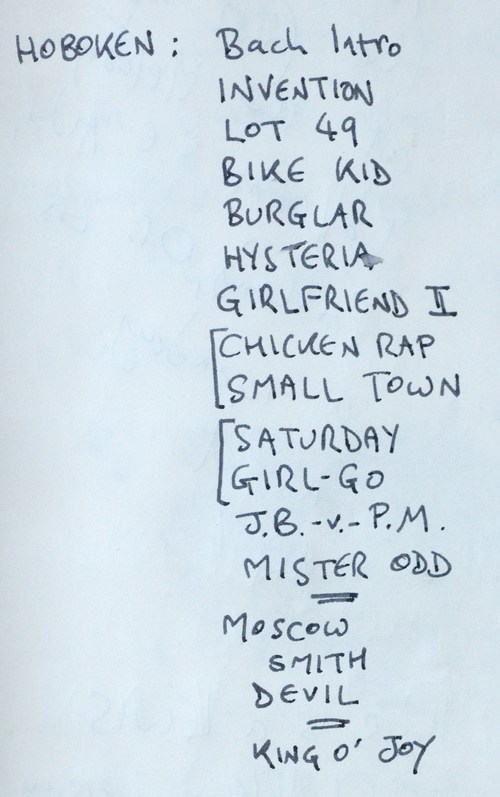 HOBOKEN: Bach Intro
INVENTION
LOT 49
BIKE KID
BURGLAR
HYSTERIA
GIRLFRIEND II
CHICKEN RAP
SMALL TOWN
SATURDAY
GIRL-GO
J.B.-v.-P.M.
MISTER ODD
MOSCOW
SMITH
DEVIL
KING O' JOY